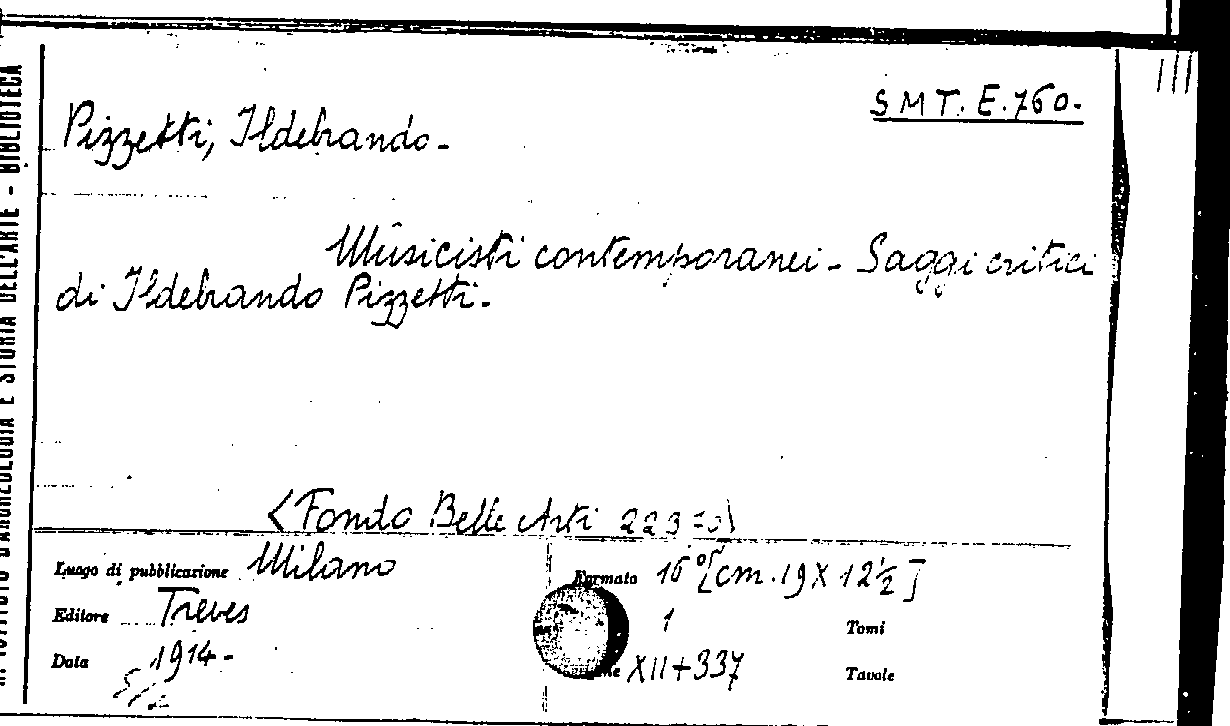 S M T. E. 760.
III
Pizzetti, Ildebrando.
Musicisti contemporanei - Saggi critici
di Ildebrando Pizzetti.
<Fondo Belle Arti
Luogo di pubblicazione Milano
Formato 16° [cm. 19 X 12½]
Editore Treves
1 Tomi
Data 1914 -
XII + 337
Tavole
ISTITUTO D'ARCHEOLOGIA E STORIA DELL'ARTE - BIBLIOTECA